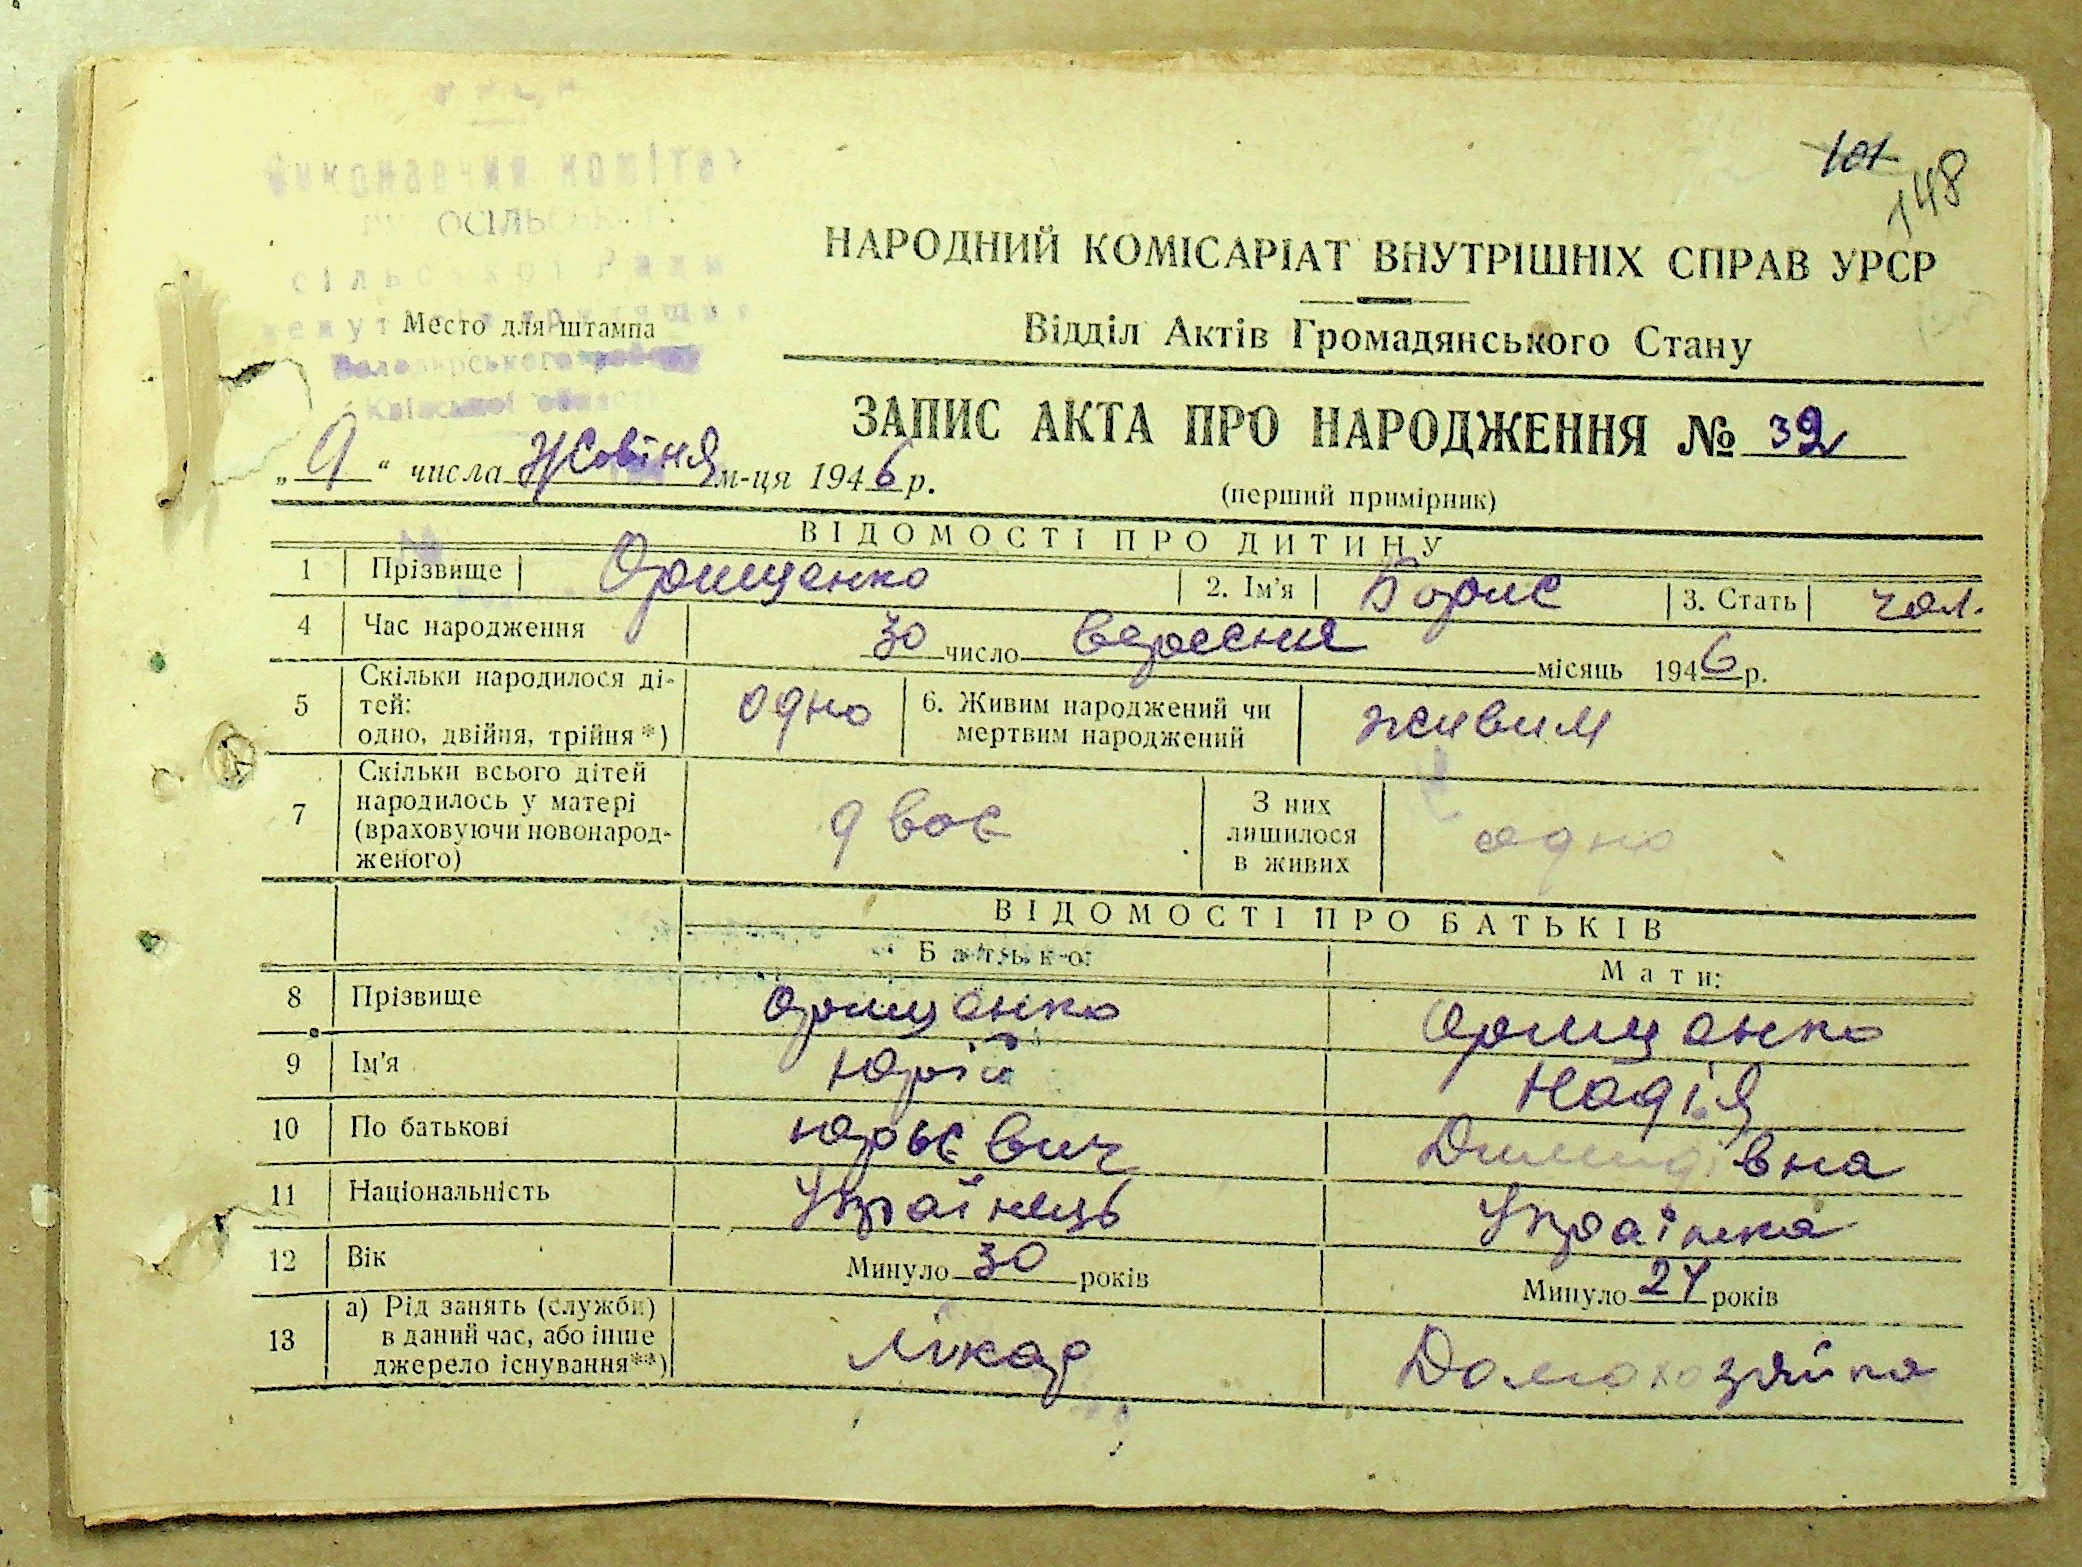 УРСР
Виконавчий комітет
сільської Ради
депутатів трудящих
Володарського району
Київської області
101
148
НАРОДНИЙ КОМІСАРІАТ ВНУТРІШНІХ СПРАВ УРСР
Место для штампа
Відділ Актів Громадянського Стану
ЗАПИС АКТА ПРО НАРОДЖЕННЯ № 32
„ 9 “ числа Жовтня м-ця 1946 р.
(перший примірник)
ВІДОМОСТІ ПРО ДИТИНУ
1 Прізвище Орищенко 2. Ім'я Борис 3. Стать чол.
4 Час народження 30 число вересня місяць 1946 р.
5 Скільки народилося ді-
тей:
одно, двійня, трійня*) одно 6. Живим народжений чи
мертвим народжений живим
7 Скільки всього дітей
народилось у матері
(враховуючи новонарод-
женого) двоє З них
лишилося
в живих одно
ВІДОМОСТІ ПРО БАТЬКІВ
Батько: Мати:
8 Прізвище Орищенко Орищенко
9 Ім'я Юрій Надія
10 По батькові Юрьєвич
11 Національність Українець Українка
12 Вік Минуло 30 років Минуло 24 років
13 а) Рід занять (служби)
в даний час, або інше
джерело існування**) лікар Домохозяйка